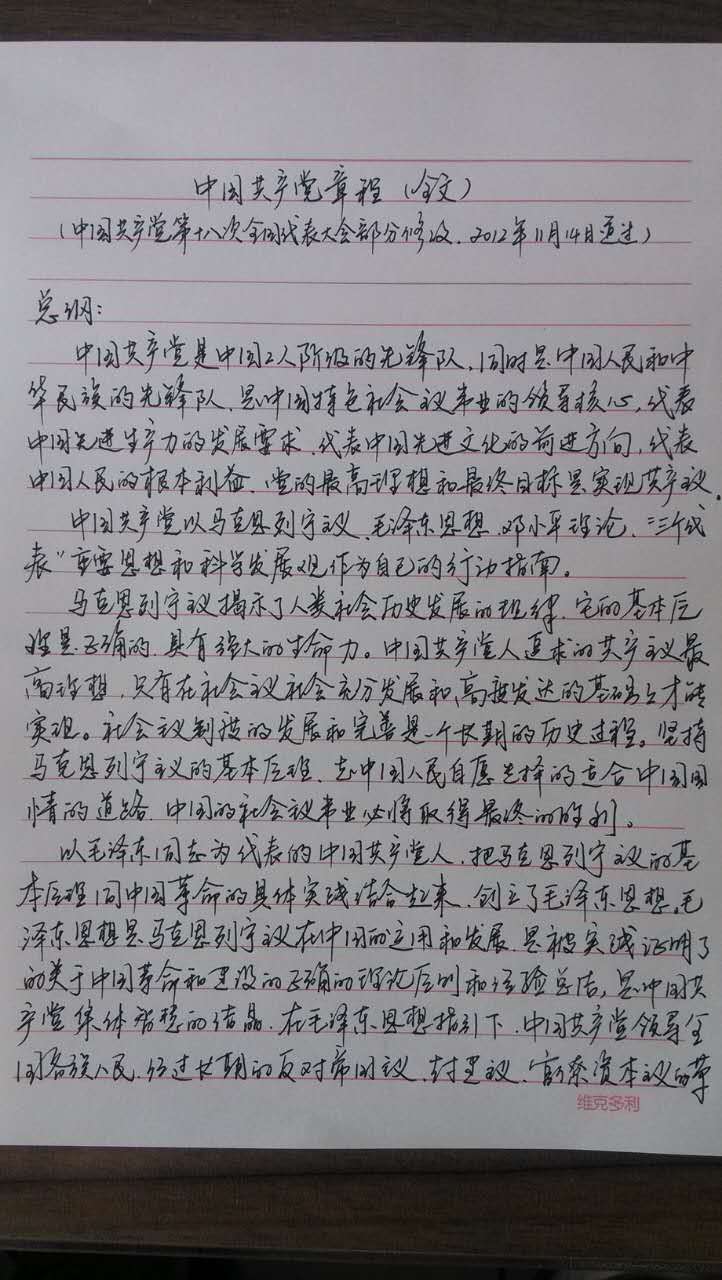 中国共产党章程（全文）
（中国共产党第十八次全国代表大会部分修改，2012年11月14日通过）
总纲：
中国共产党是中国工人阶级的先锋队，同时是中国人民和中
华民族的先锋队，是中国特色社会主义事业的领导核心，代表
中国先进生产力的发展要求，代表中国先进文化的前进方向，代表
中国人民的根本利益，党的最高理想和最终目标是实现共产主义。
中国共产党以马克思列宁主义、毛泽东思想、邓小平理论、“三个代
表”重要思想和科学发展观作为自己的行动指南。
马克思列宁主义揭示了人类社会历史发展的规律，它的基本原
理是正确的，具有强大的生命力。中国共产党人追求的共产主义最
高理想，只有在社会主义社会充分发展和高度发达的基础上才能
实现。社会主义制度的发展和完善是一个长期的历史过程。坚持
马克思列宁主义的基本原理，走中国人民自愿选择的适合中国国
情的道路，中国的社会主义事业必将取得最终的胜利。
以毛泽东同志为代表的中国共产党人，把马克思列宁主义的基
本原理同中国革命的具体实践结合起来，创立了毛泽东思想。毛
泽东思想是马克思列宁主义在中国的运用和发展，是被实践证明了
的关于中国革命和建设的正确的理论原则和经验总结，是中国共
产党集体智慧的结晶。在毛泽东思想指引下，中国共产党领导全
国各族人民，经过长期的反对帝国主义、封建主义、官僚资本主义的革
维克多利